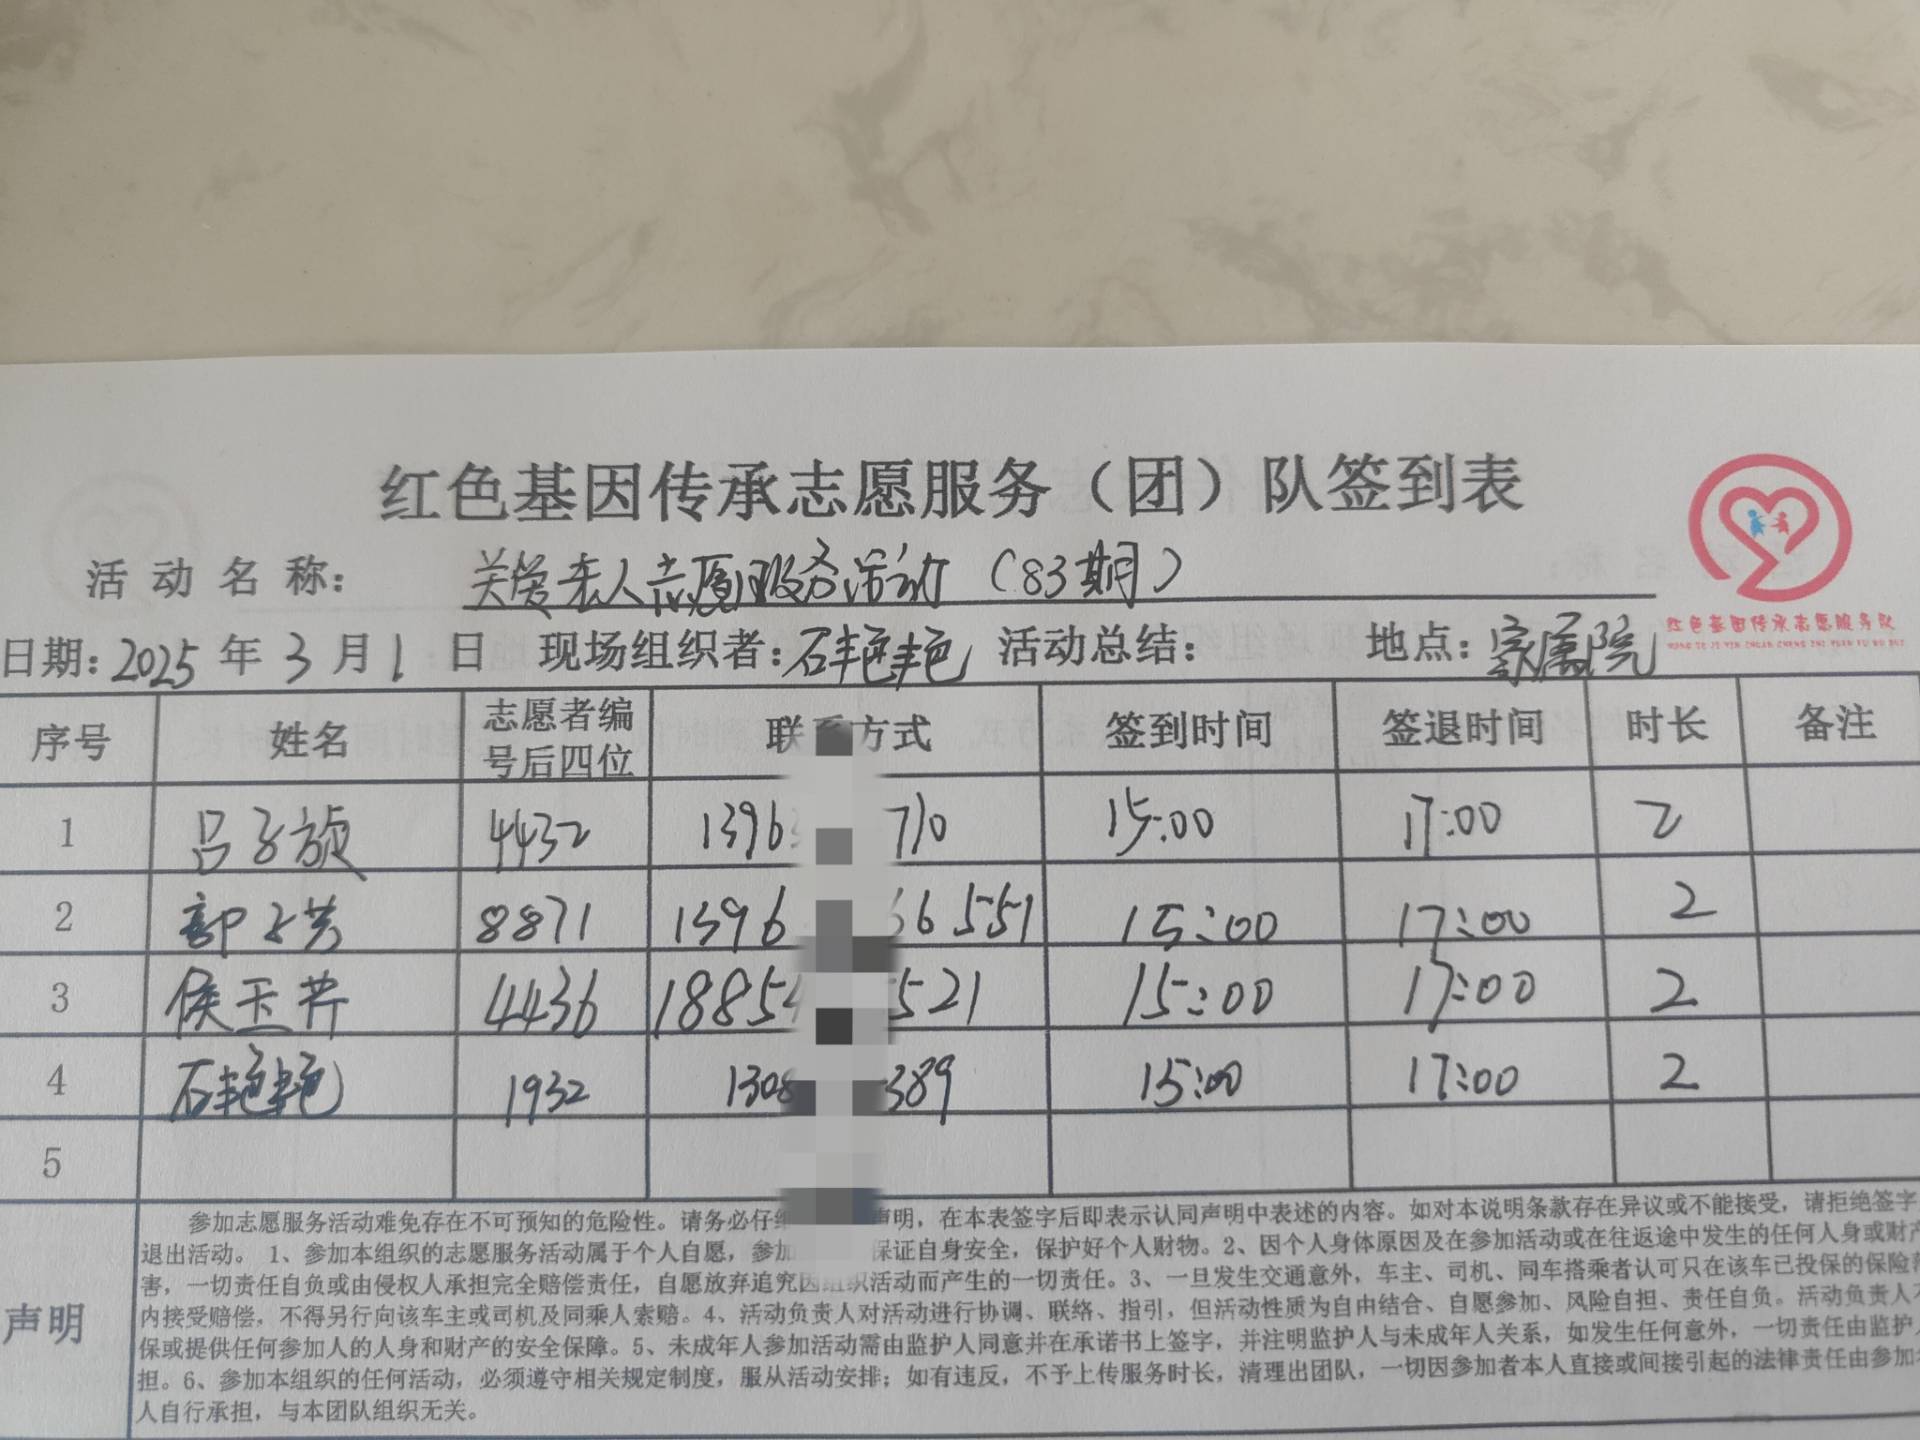 红色基因传承志愿服务（团）队签到表
活动名称：关爱老人志愿服务活动（83期）
红色基因传承志愿服务队
HONG SE JI YIN CHUAN CHENG ZHI YUAN FU WU DUI
日期：2025年3月1日 现场组织者：石艳艳 活动总结： 地点：家属院
序号 姓名 志愿者编号后四位 联 方式 签到时间 签退时间 时长 备注
1 吕子旋 4432 1396 710 15:00 17:00 2
2 郭子芸 8871 1396 36551 15:00 17:00 2
3 侯玉芹 4436 18854 521 15:00 17:00 2
4 石艳艳 1932 1308 389 15:00 17:00 2
5
声明
参加志愿服务活动难免存在不可预知的危险性。请务必仔 声明，在本表签字后即表示认同声明中表述的内容。如对本说明条款存在异议或不能接受，请拒绝签字
退出活动。1、参加本组织的志愿服务活动属于个人自愿，参加 保证自身安全，保护好个人财物。2、因个人身体原因及在参加活动或在往返途中发生的任何人身或财产
害，一切责任自负或由侵权人承担完全赔偿责任，自愿放弃追究因组织活动而产生的一切责任。3、一旦发生交通意外，车主、司机、同车搭乘者认可只在该车已投保的保险范
内接受赔偿，不得另行向该车主或司机及同乘人索赔。4、活动负责人对活动进行协调、联络、指引，但活动性质为自由结合、自愿参加、风险自担、责任自负。活动负责人不
保或提供任何参加人的人身和财产的安全保障。5、未成年人参加活动需由监护人同意并在承诺书上签字，并注明监护人与未成年人关系，如发生任何意外，一切责任由监护人
担。6、参加本组织的任何活动，必须遵守相关规定制度，服从活动安排；如有违反，不予上传服务时长，清理出团队，一切因参加者本人直接或间接引起的法律责任由参加者
人自行承担，与本团队组织无关。